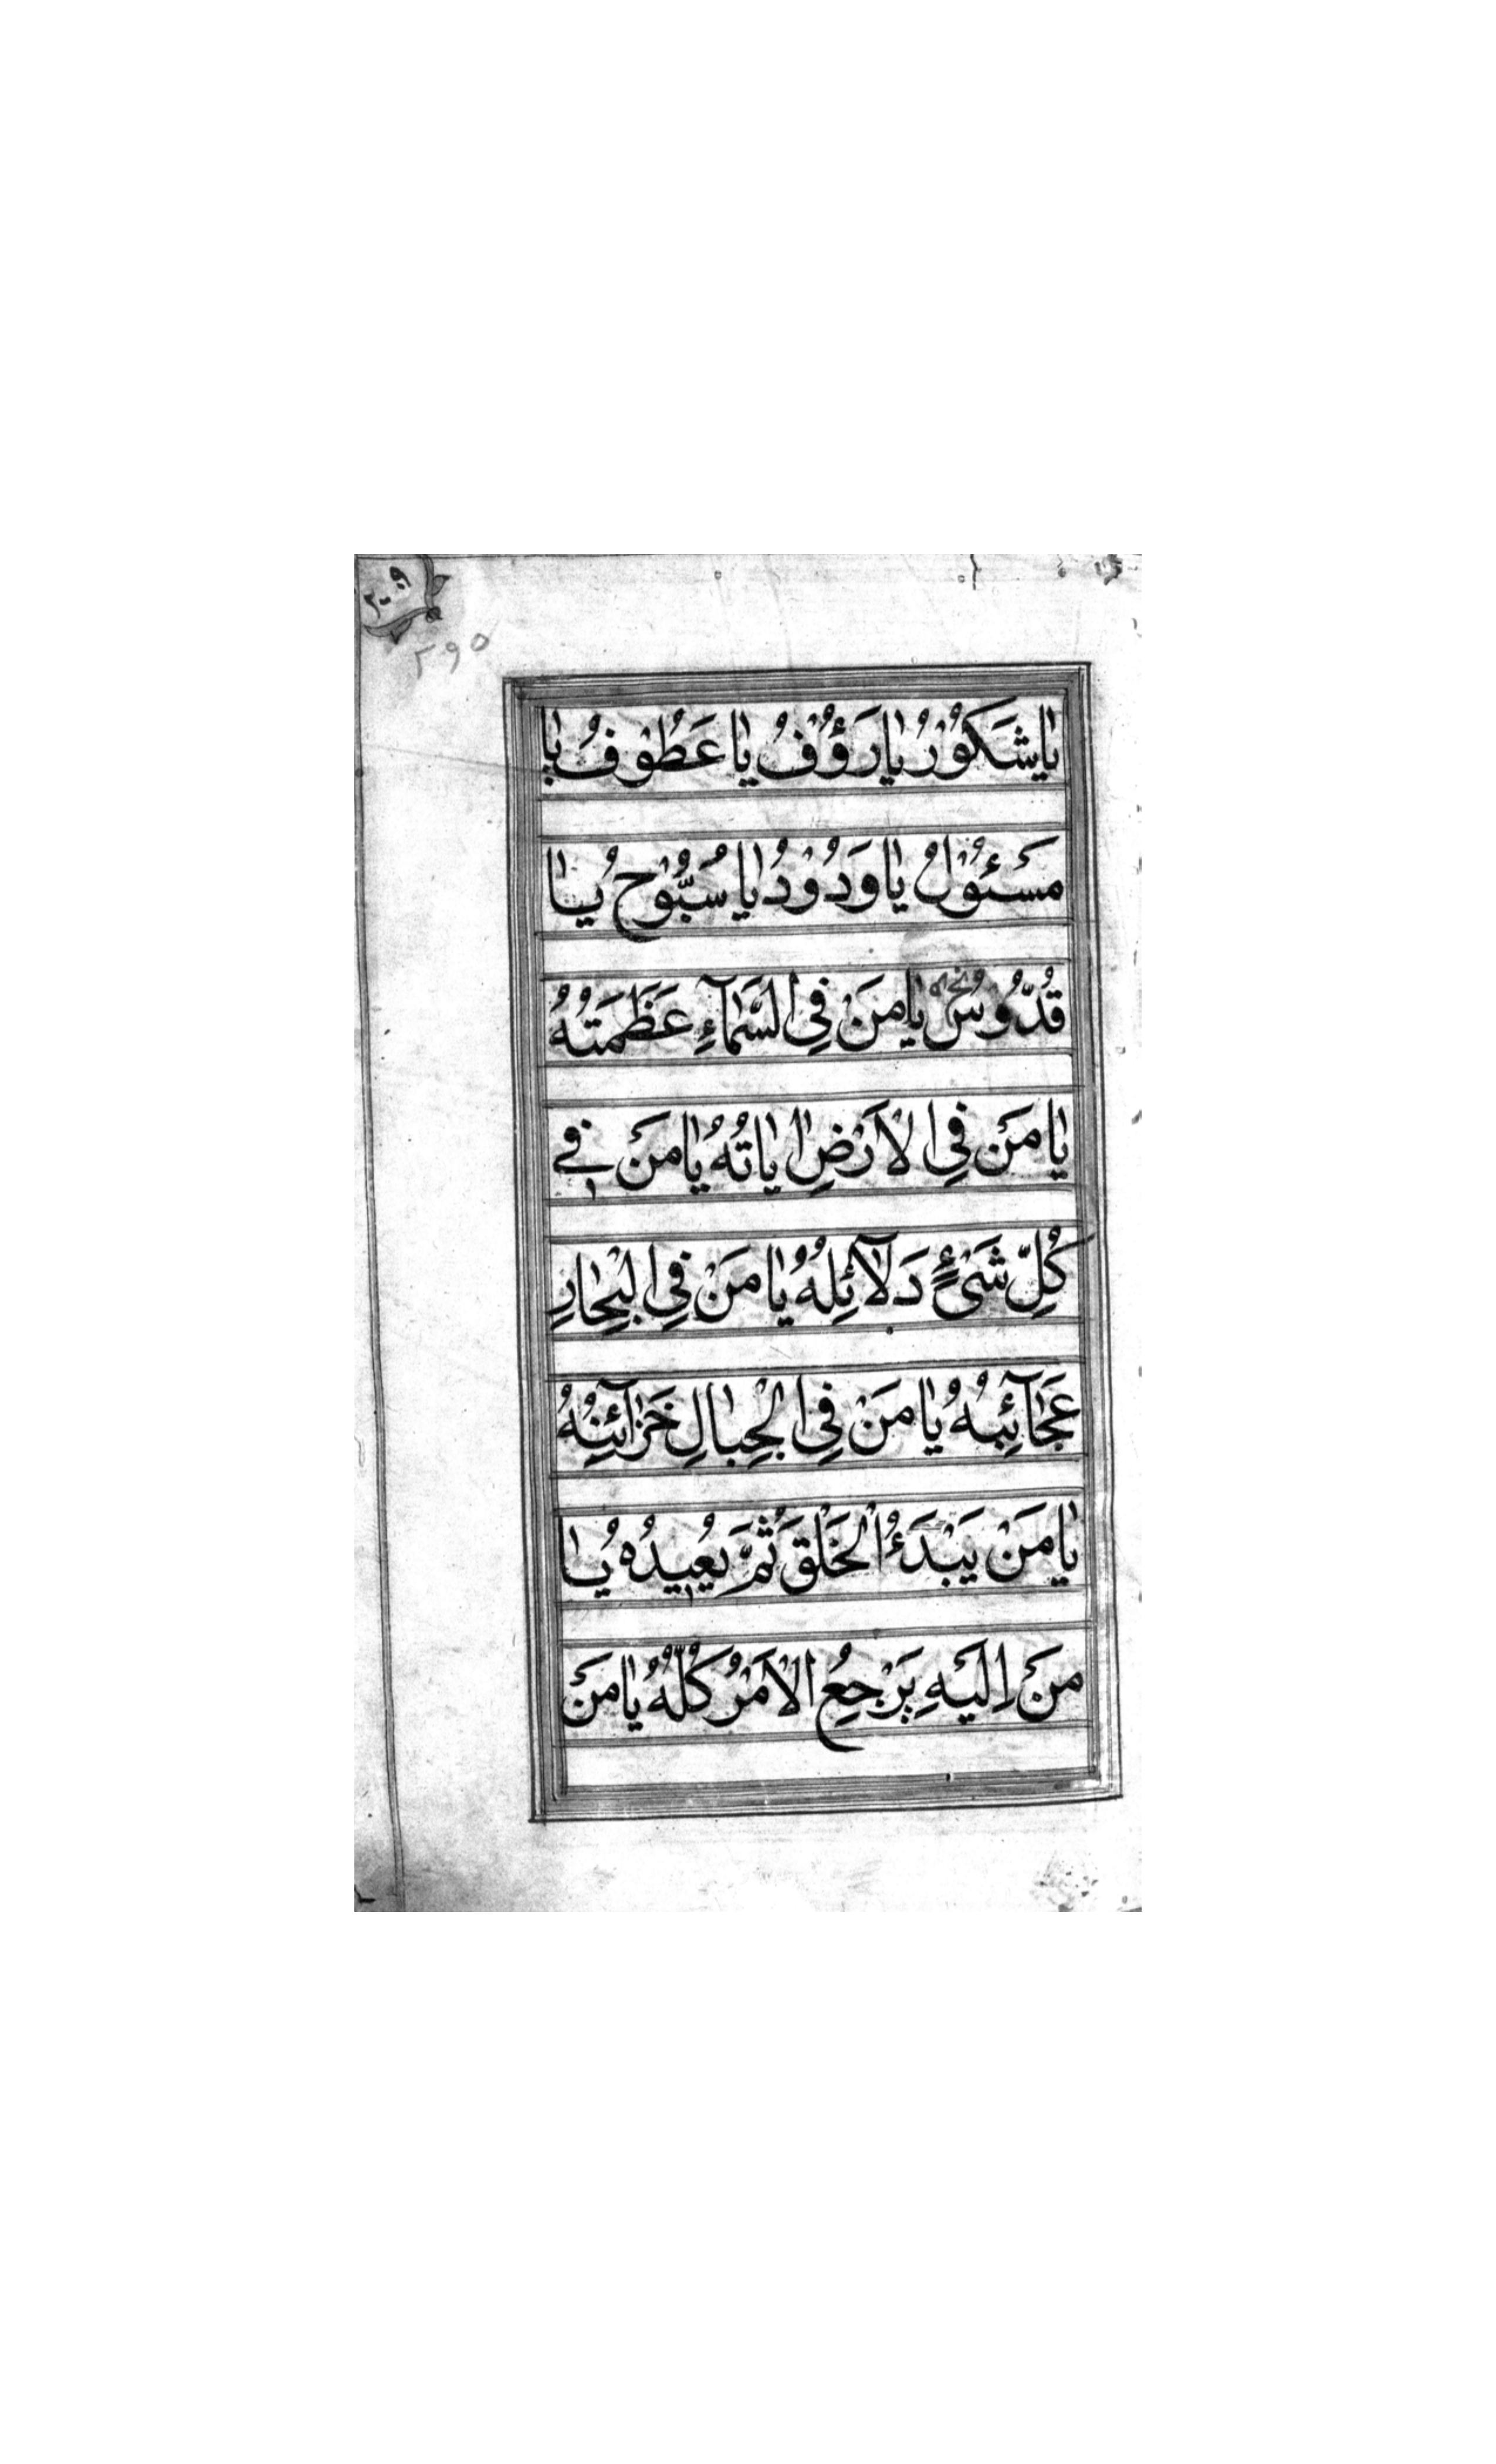 ٢٠٩
٢٩٥
يَا شَكُوْرُ يَا رَؤُفُ يَا عَطُوْفُ يَا
مَسْئُوْلُ يَا وَدُوْدُ يَا سُبُّوْحُ يَا
قُدُّوْسُ يَا مَنْ فِى السَّمَآءِ عَظَمَتُهُ
يَا مَنْ فِى الْاَرْضِ ايَاتُهُ يَا مَنْ فِے
كُلِّ شَىْءٍ دَلَآئِلُهُ يَا مَنْ فِى الْبِحَارِ
عَجَآئِبُهُ يَا مَنْ فِى الْجِبَالِ خَزَآئِنُهُ
يَا مَنْ يَبْدَءُ الْخَلْقَ ثُمَّ يُعِيدُهُ يَا
مَنْ اِلَيْهِ يَرْجِعُ الْاَمْرُ كُلُّهُ يَا مَنْ